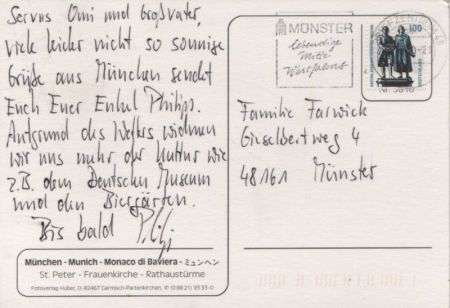 Servus Omi und Großvater,
viele leider nicht so sonnige
Grüße aus München sendet
Euch Euer Enkel Philipp.
Aufgrund des Wetters widmen
wir uns mehr der Kultur wie
z.B. dem Deutschen Museum
und den Biergärten.
Bis bald
München - Munich - Monaco di Baviera - ミュンヘン
St. Peter - Frauenkirche - Rathaustürme
Fotoverlag Huber, D-82467 Garmisch-Partenkirchen, ✆ (0 88 21) 93 33-0
MÜNSTER
lebendige
Mitte
Westfalens
100
Familie Farwick
Giselbertweg 4
48161 Münster